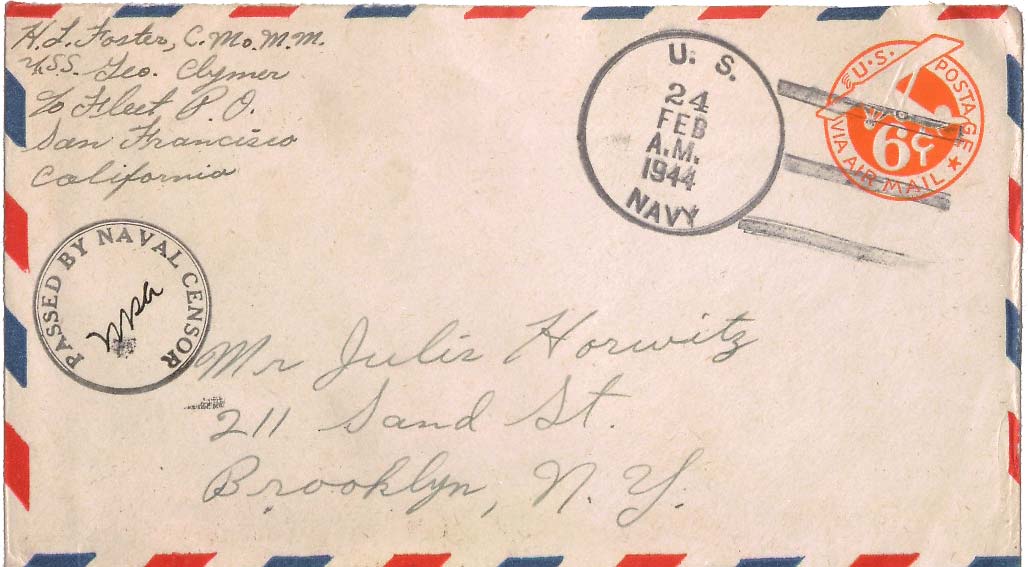 H. L. Foster, C. Mo. M. M.
U.S.S. Geo. Clymer
℅ Fleet P. O.
San Francisco
California
U. S.
24
FEB
A.M.
1944
NAVY
U.S. POSTAGE
6¢
VIA AIR MAIL
PASSED BY NAVAL CENSOR
Mr Julis Horwitz
211 Sand St.
Brooklyn, N. Y.